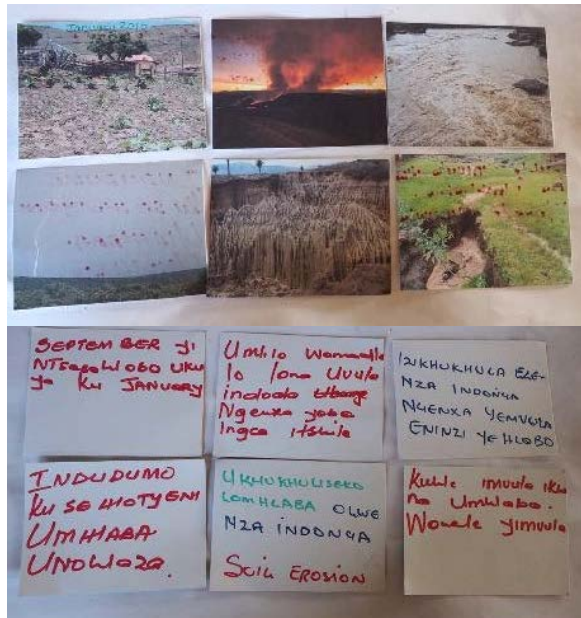 JANUARY 2010
SEPTEMBER yi
UKU
ya KU JANUARY
Umlilo
lo lona Uvula
indoda
Ngenxa yoba
Ingca itshile
IZIKHUKHULA ELE-
NZA INDONGA
NGENXA YEMVULA
ENINZI YEHLOBO
INDUDUMO
KUSEHLOTYENI
UMHLABA
UKHUKHULISEKO
LOMHLABA OLWE
NZA INDONGA
SOIL EROSION
Kuhle imvula iku
na Umhlaba.
Wowele yimvula